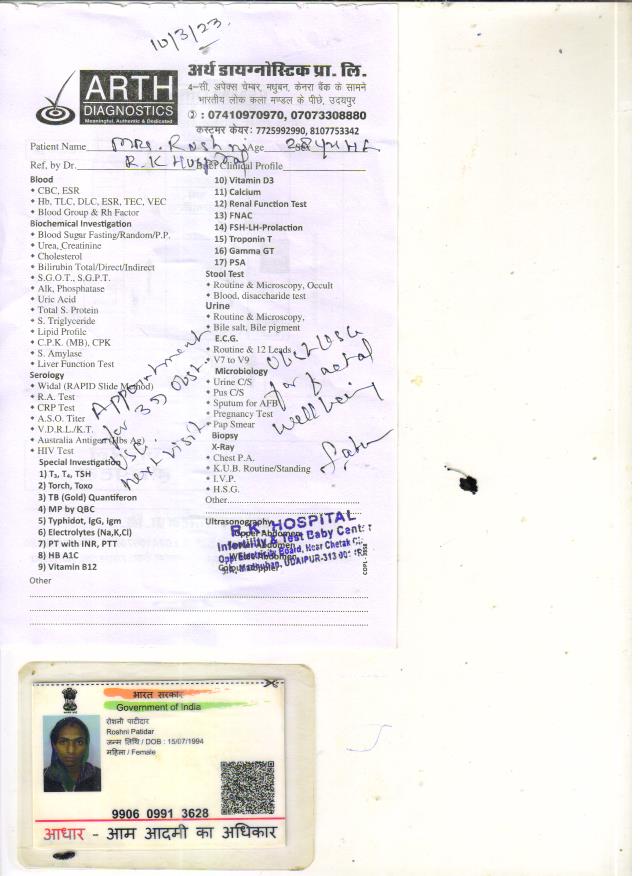 10/3/23.
ARTH
DIAGNOSTICS
Meaningful, Authentic & Dedicated
अर्थ डायग्नोस्टिक प्रा. लि.
4-सी, अपेक्स चेम्बर, मधुबन, केनरा बैंक के सामने
भारतीय लोक कला मण्डल के पीछे, उदयपुर
: 07410970970, 07073308880
कस्टमर केयर: 7725992990, 8107753342
Patient Name Mrs. Roshni Age 28 yr Sex
Ref, by Dr. R.K Hospital Brief Clinical Profile
Blood
• CBC, ESR
• Hb, TLC, DLC, ESR, TEC, VEC
• Blood Group & Rh Factor
Biochemical Investigation
• Blood Sugar Fasting/Random/P.P.
• Urea, Creatinine
• Cholesterol
• Bilirubin Total/Direct/Indirect
• S.G.O.T., S.G.P.T.
• Alk, Phosphatase
• Uric Acid
• Total S. Protein
• S. Triglyceride
• Lipid Profile
• C.P.K. (MB), CPK
• S. Amylase
• Liver Function Test
Serology
• Widal (RAPID Slide Method)
• R.A. Test
• CRP Test
• A.S.O. Titer
• V.D.R.L./K.T.
• Australia Antigen (Hbs Ag)
• HIV Test
Special Investigation
1) T₃, T₄, TSH
2) Torch, Toxo
3) TB (Gold) Quantiferon
4) MP by QBC
5) Typhidot, IgG, Igm
6) Electrolytes (Na,K,Cl)
7) PT with INR, PTT
8) HB A1C
9) Vitamin B12
Other
10) Vitamin D3
11) Calcium
12) Renal Function Test
13) FNAC
14) FSH-LH-Prolaction
15) Troponin T
16) Gamma GT
17) PSA
Stool Test
• Routine & Microscopy, Occult
• Blood, disaccharide test
Urine
• Routine & Microscopy,
• Bile salt, Bile pigment
E.C.G.
• Routine & 12 Leads
• V7 to V9
Microbiology
• Urine C/S
• Pus C/S
• Sputum for AFB
• Pregnancy Test
• Pap Smear
Biopsy
X-Ray
• Chest P.A.
• K.U.B. Routine/Standing
• I.V.P.
• H.S.G.
Other
Ultrasonography
Upper Abdomen
Colour Doppler
Appointment
for 3D Obst.
USG.
next visit
Obst USG
for faetal
well being
R.K. HOSPITAL
Infertility & Test Baby Center
Opp. Electricity Board, Near Chetak
Madhuban, UDAIPUR-313 001
भारत सरकार
Government of India
रोशनी पाटीदार
Roshni Patidar
जन्म तिथि / DOB : 15/07/1994
महिला / Female
9906 0991 3628
आधार - आम आदमी का अधिकार